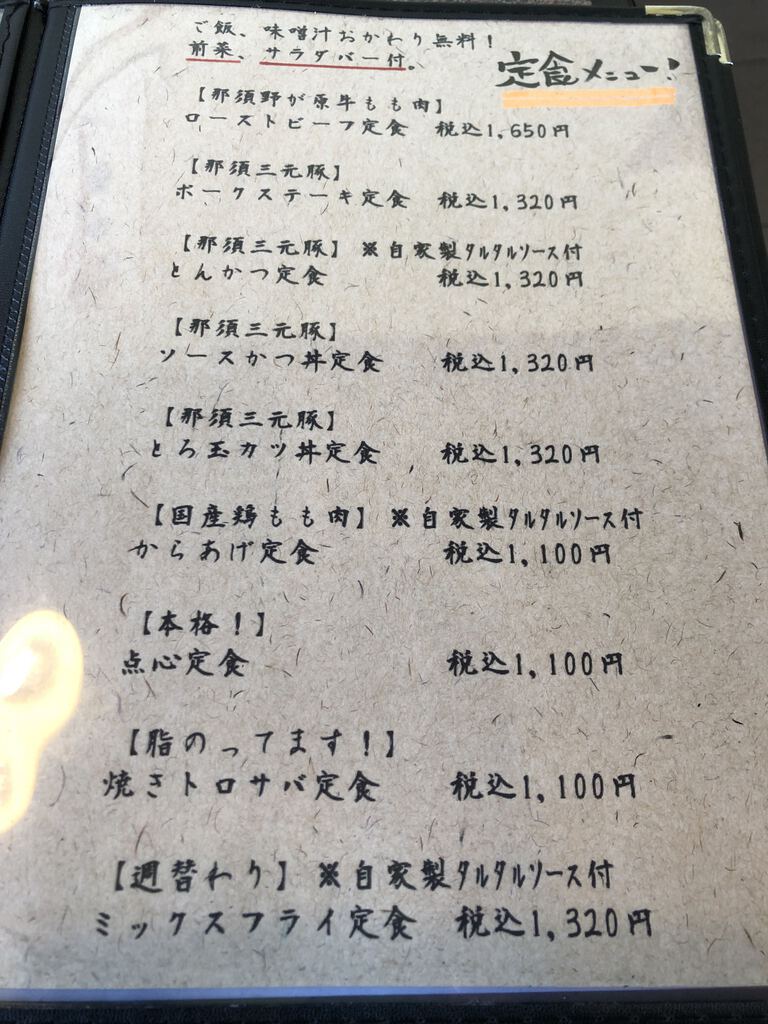 ご飯、味噌汁おかわり無料！
前菜、サラダバー付。
定食メニュー！
【那須野が原牛もも肉】
ローストビーフ定食 税込1,650円
【那須三元豚】
ポークステーキ定食 税込1,320円
【那須三元豚】※自家製タルタルソース付
とんかつ定食 税込1,320円
【那須三元豚】
ソースかつ丼定食 税込1,320円
【那須三元豚】
とろ玉カツ丼定食 税込1,320円
【国産鶏もも肉】※自家製タルタルソース付
からあげ定食 税込1,100円
【本格！】
点心定食 税込1,100円
【脂のってます！】
焼きトロサバ定食 税込1,100円
【週替わり】※自家製タルタルソース付
ミックスフライ定食 税込1,320円